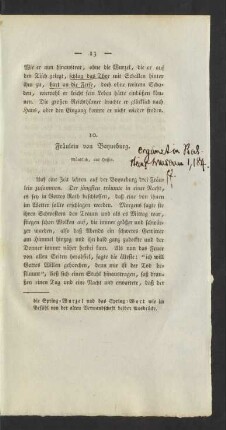 — 13 —
Wie er nun heraustrat, ohne die Wurzel, die er auf
den Tisch gelegt, schlug das Thor mit Schallen hinter
ihm zu, hart an die Ferse, doch ohne weitern Scha-
den, wiewohl er leicht sein Leben hätte einbüßen kön-
nen. Die großen Reichthümer brachte er glücklich nach
Haus, aber den Eingang konnte er nicht wieder finden.
10.
Fräulein von Boyneburg.
Mündlich, aus Hessen.
Auf eine Zeit lebten auf der Boyneburg drei Fräu-
lein zusammen. Der jüngsten träumte in einer Nacht,
es sey in Gottes Rath beschlossen, daß eine von ihnen
im Wetter sollte erschlagen werden. Morgens sagte sie
ihren Schwestern den Traum und als es Mittag war,
stiegen schon Wolken auf, die immer größer und schwär-
zer wurden, also daß Abends ein schweres Gewitter
am Himmel hinzog und ihn bald ganz zudeckte und der
Donner immer näher herbei kam. Als nun das Feuer
von allen Seiten herabfiel, sagte die älteste: "ich will
Gottes Willen gehorchen, denn mir ist der Tod be-
stimmt", ließ sich einen Stuhl hinaustragen, saß drau-
ßen einen Tag und eine Nacht und erwartete, daß der
die Spring-Wurzel und das Spring-Wort wie im
Gefühl von der alten Verwandtschaft beider Ausdrücke.